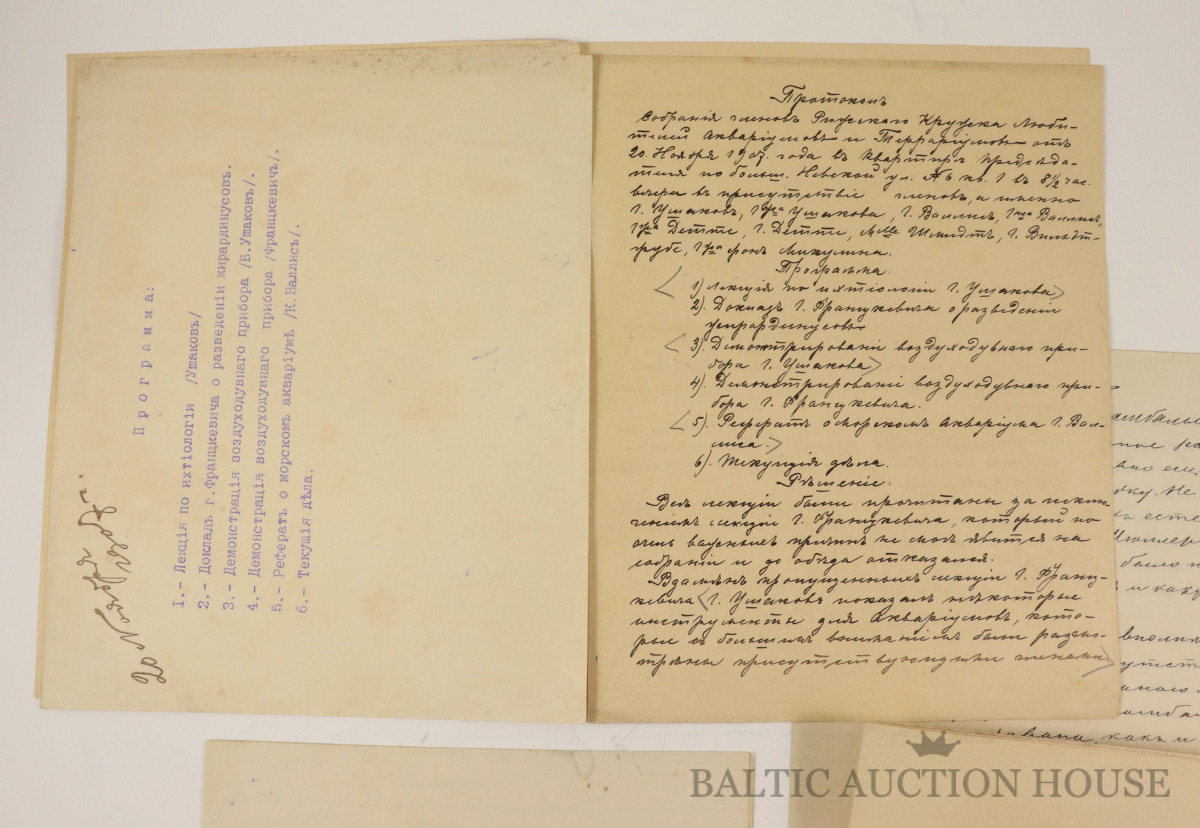 20 Ноября 1907 г.
Программа:
1.- Лекція по ихтіологіи /Ушаковъ/
2.- Докладъ г.Францкевича о разведеніи жирардинусовъ.
3.- Демонстрація воздуходувнаго прибора /Б.Ушаковъ/.
4.- Демонстрація воздуходувнаго прибора /Францкевичъ/.
5.- Рефератъ о морскомъ акваріумѣ /К.Валлисъ/.
6.- Текушія дѣла.
Протоколъ
Собранія членовъ Рижскаго Кружка Люби-
телей Акваріумовъ и Терраріумовъ отъ
20. Ноября 1907. года въ квартирѣ предсѣда-
теля по больш. Невской ул. № 6. кв. 1 въ 8 1/2 час.
вечера въ присутствіе членов, а именно
Г. Ушаков, Гжа Ушакова, Г. Валлисъ, Гжа Валлисъ,
Гжа Детте, Г. Детте, Mlle Шмидтъ, Г. Вильдт-
грубе, Гжа фонъ Микулина.
Программа:
1) Лекція по ихтіологіи Г. Ушакова
2). Докладъ Г. Францкевича о разведеніи
жирардинусовъ
3). Демонтрированіе воздуходувнаго при-
бора Г. Ушакова
4). Демонстрированіе воздуходувнаго при-
бора Г. Францкевича.
5). Рефератъ о морскомъ Акваріума Г. Вал-
лиса.
6). Текущія дѣла.
Рѣшеніе:
Всѣ лекціи были прочитаны за исклю
ченіемъ лекціи Г. Францкевича, который по
очень важныхъ причинъ не смогъ явится на
собраніи и до обѣда отказался.
Взамѣнъ пропущенныхъ лекціи Г. Франц-
кевича Г. Ушаковъ показалъ нѣкоторые
инструменты для Акваріумовъ, кото-
рые съ большимъ вниманіемъ были разсмо-
трѣны присутствующими членами
BALTIC AUCTION HOUSE